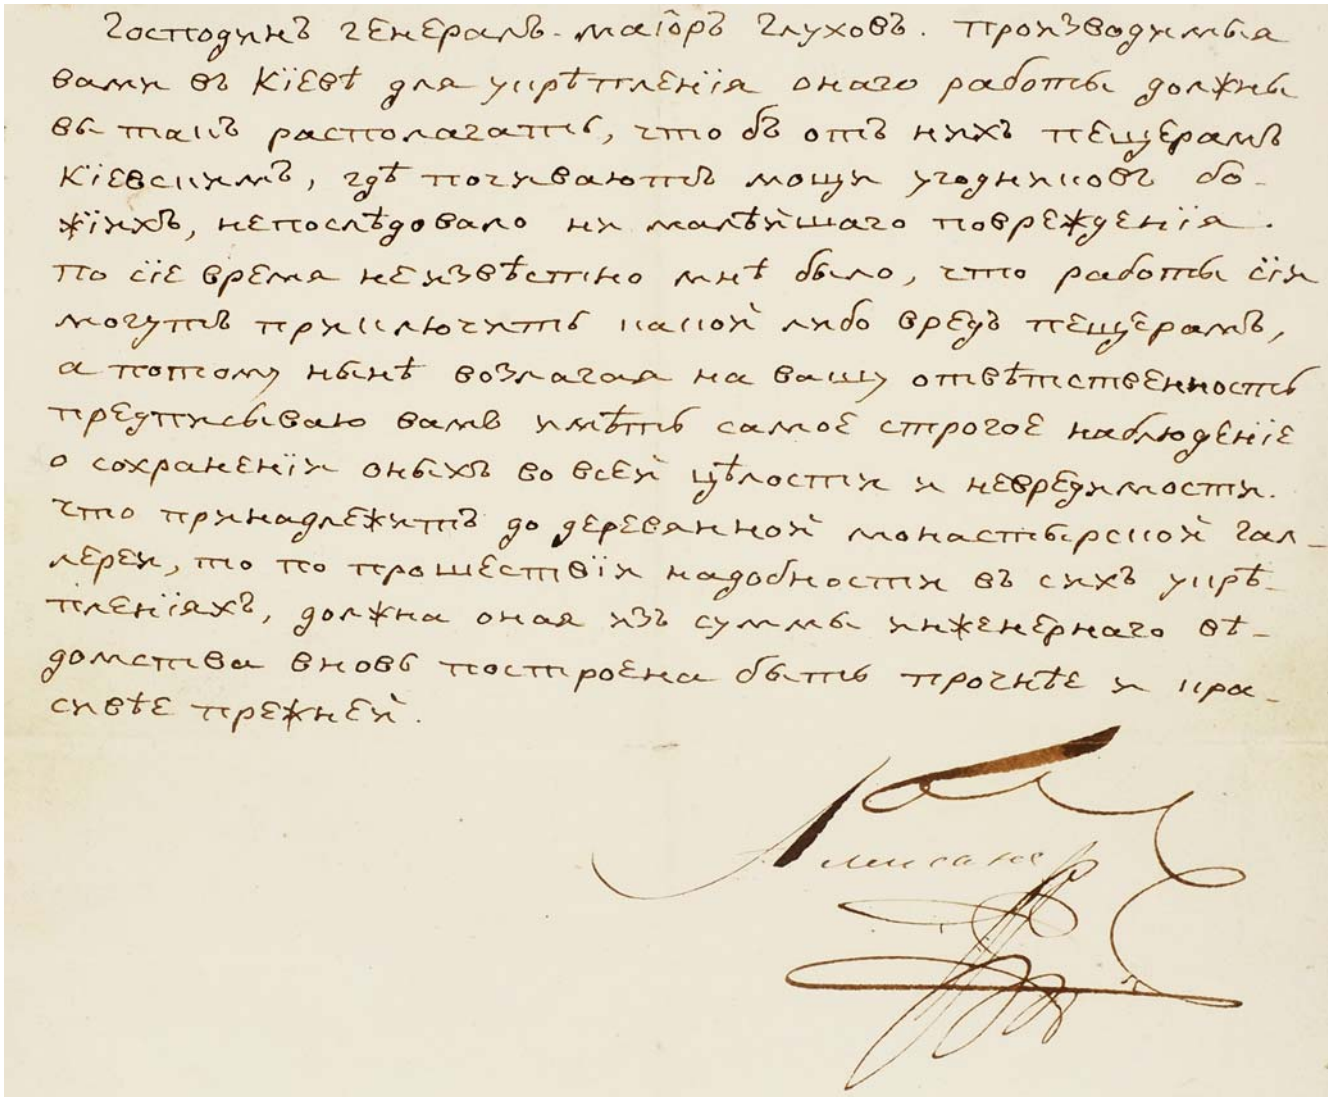 Господинъ генералъ-маіоръ Глуховъ. производимыя
вами въ Кїевѣ для укрѣпленїя онаго работы должны
вы такъ располагать, что бъ отъ нихъ пещерамъ
Кїевскимъ, гдѣ почиваютъ мощи угодниковъ бо-
жїихъ, непослѣдовало ни малѣйшаго поврежденїя.
по сїе время неизвѣстно мнѣ было, что работы сїи
могутъ приключить какой либо вредъ пещерамъ,
а потому нынѣ возлагая на вашу отвѣтственность
предписываю вамъ имѣть самое строгое наблюденїе
о сохраненїи оныхъ во всей цѣлости и невредимости.
что принадлежитъ до деревянной монастырской гал-
лереи, то по прошествїи надобности въ сихъ укрѣ-
пленїяхъ, должна оная изъ суммы инженернаго вѣ-
домства вновь построена быть прочнѣе и кра-
сивѣе прежней.
Александръ